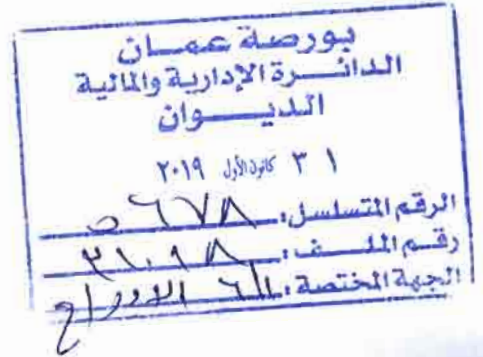 بورصة عمــان
الدائــــرة الإدارية والمالية
الديـــــوان
٣١ كانون الأول ٢٠١٩
الرقم المتسلسل: ٥٦٧٨
رقــم الملـــف: ٣١٠١٨
الجهة المختصة: الإدراج